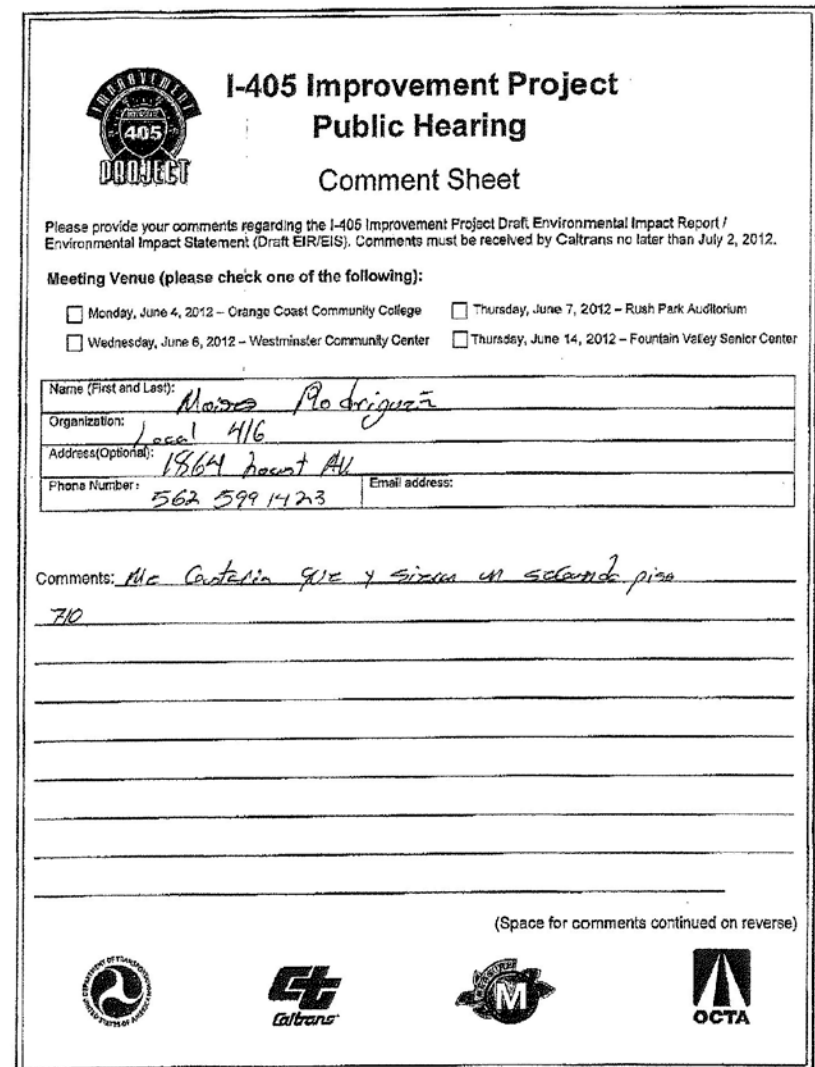 IMPROVEMENT
INTERSTATE
405
PROJECT
I-405 Improvement Project
Public Hearing
Comment Sheet
Please provide your comments regarding the I-405 Improvement Project Draft Environmental Impact Report /
Environmental Impact Statement (Draft EIR/EIS). Comments must be received by Caltrans no later than July 2, 2012.
Meeting Venue (please check one of the following):
Monday, June 4, 2012 – Orange Coast Community College
Thursday, June 7, 2012 – Rush Park Auditorium
Wednesday, June 6, 2012 – Westminster Community Center
Thursday, June 14, 2012 – Fountain Valley Senior Center
Name (First and Last): Moises Rodriguez
Organization: Local 416
Address(Optional): 1864 Locust AV
Phone Number: 562 599 1423
Email address:
Comments: Me que y un segundo piso
710
(Space for comments continued on reverse)
DEPARTMENT OF TRANSPORTATION
UNITED STATES OF AMERICA
Ct
Caltrans
MEASURE
M
OCTA